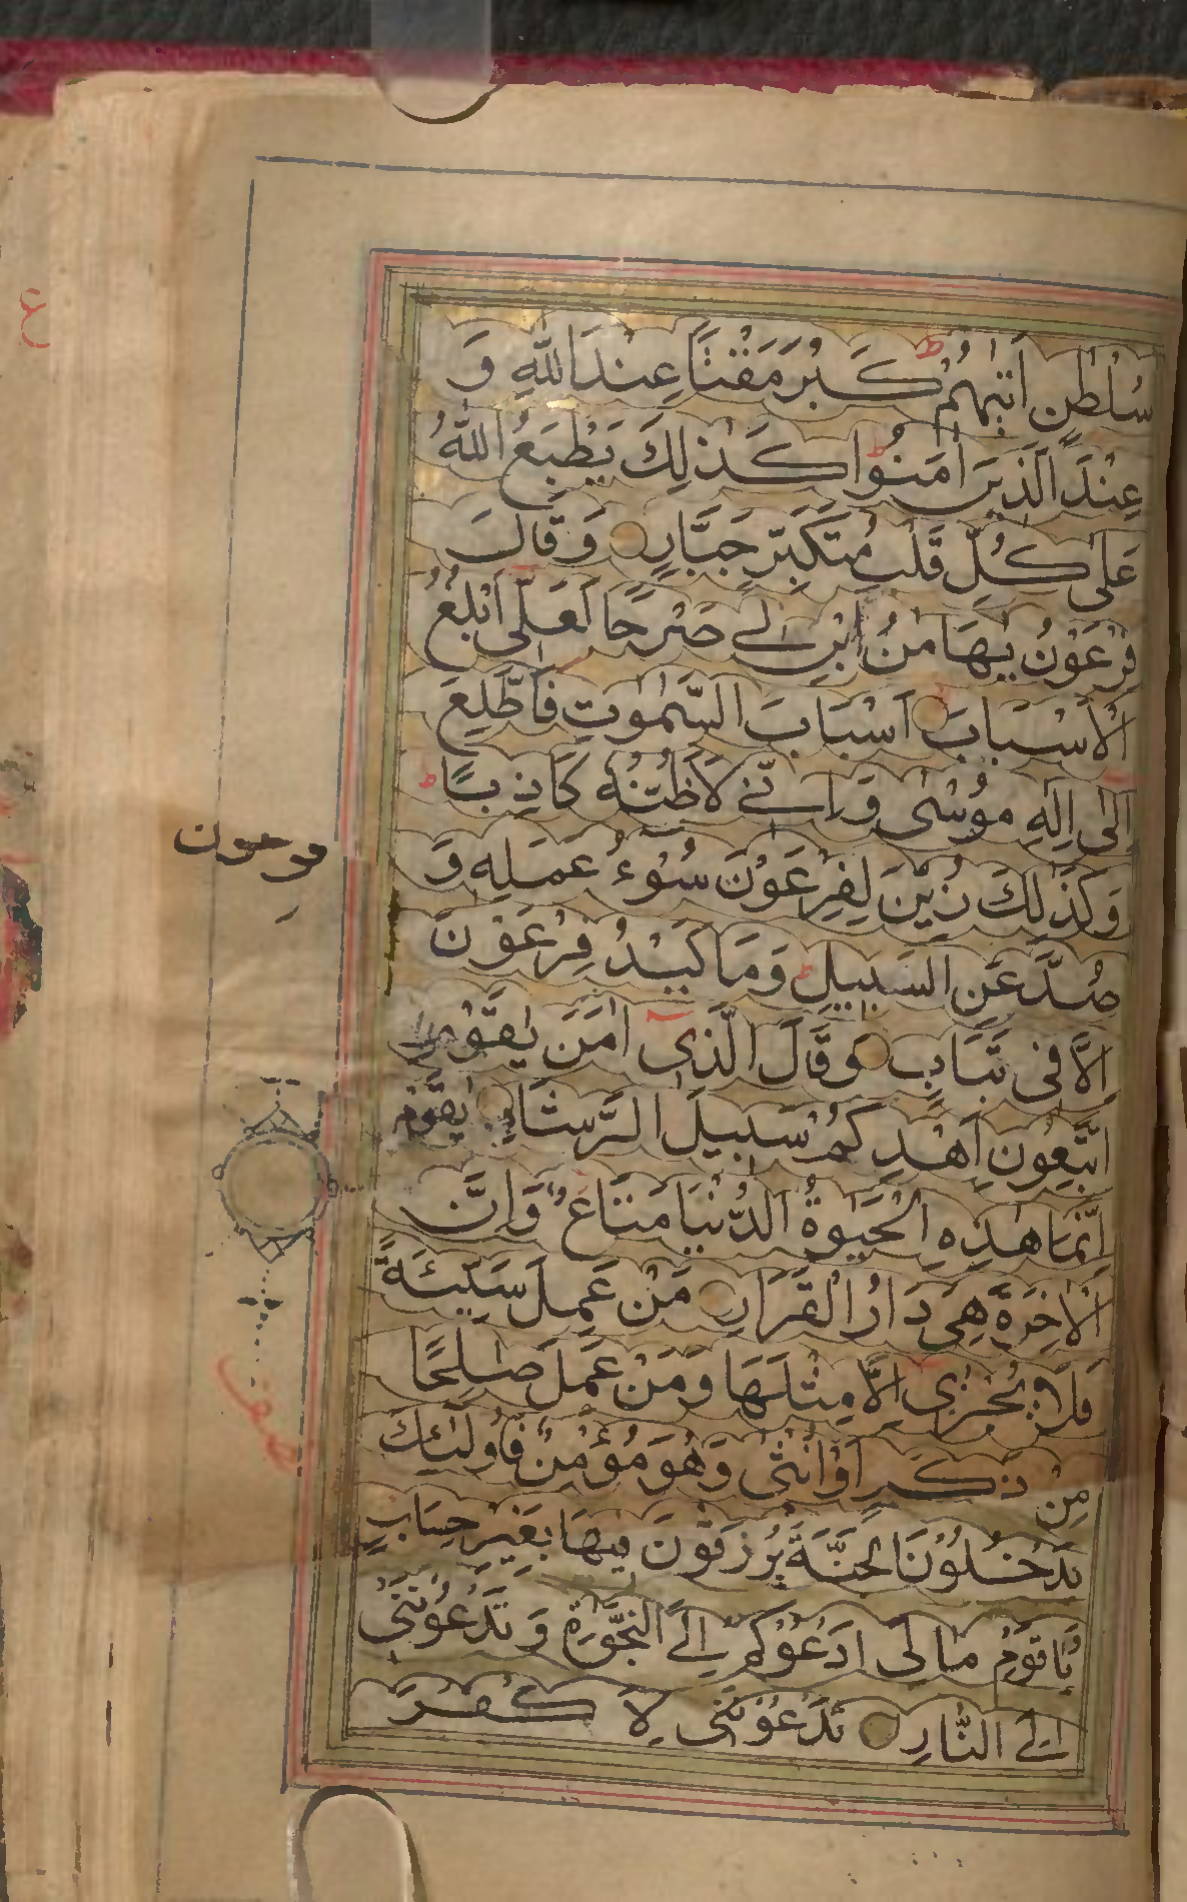 سُلْطٰنٍ اَتٰىهُمْ ط كَبُرَ مَقْتًا عِنْدَ اللّٰهِ وَ
عِنْدَ الَّذِيْنَ اٰمَنُوْا ط كَذٰلِكَ يَطْبَعُ اللّٰهُ
عَلٰى كُلِّ قَلْبِ مُتَكَبِّرٍ جَبَّارٍ وَقَالَ
فِرْعَوْنُ يٰهَامٰنُ ابْنِ لِے صَرْحًا لَعَلِّى اَبْلُغُ
الْاَسْبَابَ اَسْبَابَ السَّمٰوٰتِ فَاَطَّلِعَ
اِلٰى اِلٰهِ مُوْسٰى وَاِنِّے لَاَظُنُّهٗ كَاذِبًا ط
وَكَذٰلِكَ زُيِّنَ لِفِرْعَوْنَ سُوْءُ عَمَلِهٖ وَ
صُدَّ عَنِ السَّبِيلِ ط وَمَا كَيْدُ فِرْعَوْنَ
اِلَّا فِى تَبَابٍ وَقَالَ الَّذِى اٰمَنَ يٰقَوْمِ
اتَّبِعُونِ اَهْدِكُمْ سَبِيلَ الرَّشَادِ يٰقَوْمِ
اِنَّمَا هٰذِهِ الْحَيٰوةُ الدُّنْيَا مَتَاعٌ وَاِنَّ
الْاٰخِرَةَ هِىَ دَارُ الْقَرَارِ مَنْ عَمِلَ سَيِّئَةً
فَلَا يُجْزٰى اِلَّا مِثْلَهَا وَمَنْ عَمِلَ صٰلِحًا
مِنْ ذَكَرٍ اَوْ اُنْثٰى وَهُوَ مُؤْمِنٌ فَاُولٰئِكَ
يَدْخُلُوْنَ الْجَنَّةَ يُرْزَقُوْنَ فِيهَا بِغَيْرِ حِسَابٍ
وَيَاقَوْمِ مَا لِى اَدْعُوْكُمْ اِلَے النَّجٰوةِ وَتَدْعُوْنَنِى
اِلَے النَّارِ تَدْعُوْنَنِى لِاَكْفُرَ